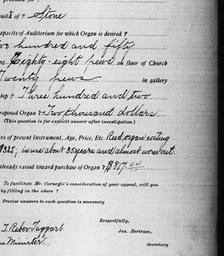 built of ? Stone
capacity of Auditorium for which Organ is desired ?
two hundred and fifty
Eighty-eight pews on floor of Church
Twenty pews in gallery
ship ? Three hundred and two
proposed Organ ? Two thousand dollars.
(This question is for explicit answer after investigation.)
of present Instrument, Age, Price, Etc. Reed organ costing
$325; in use about 30 years and almost worn out.
already raised toward purchase of Organ ? $917.00
To facilitate Mr. Carnegie's consideration of your appeal, will you
by filling in the above ?
Precise answers to each question is necessary.
Respectfully,
Jas. Bertram,
Secretary
J. Reber Taggart
Minister.